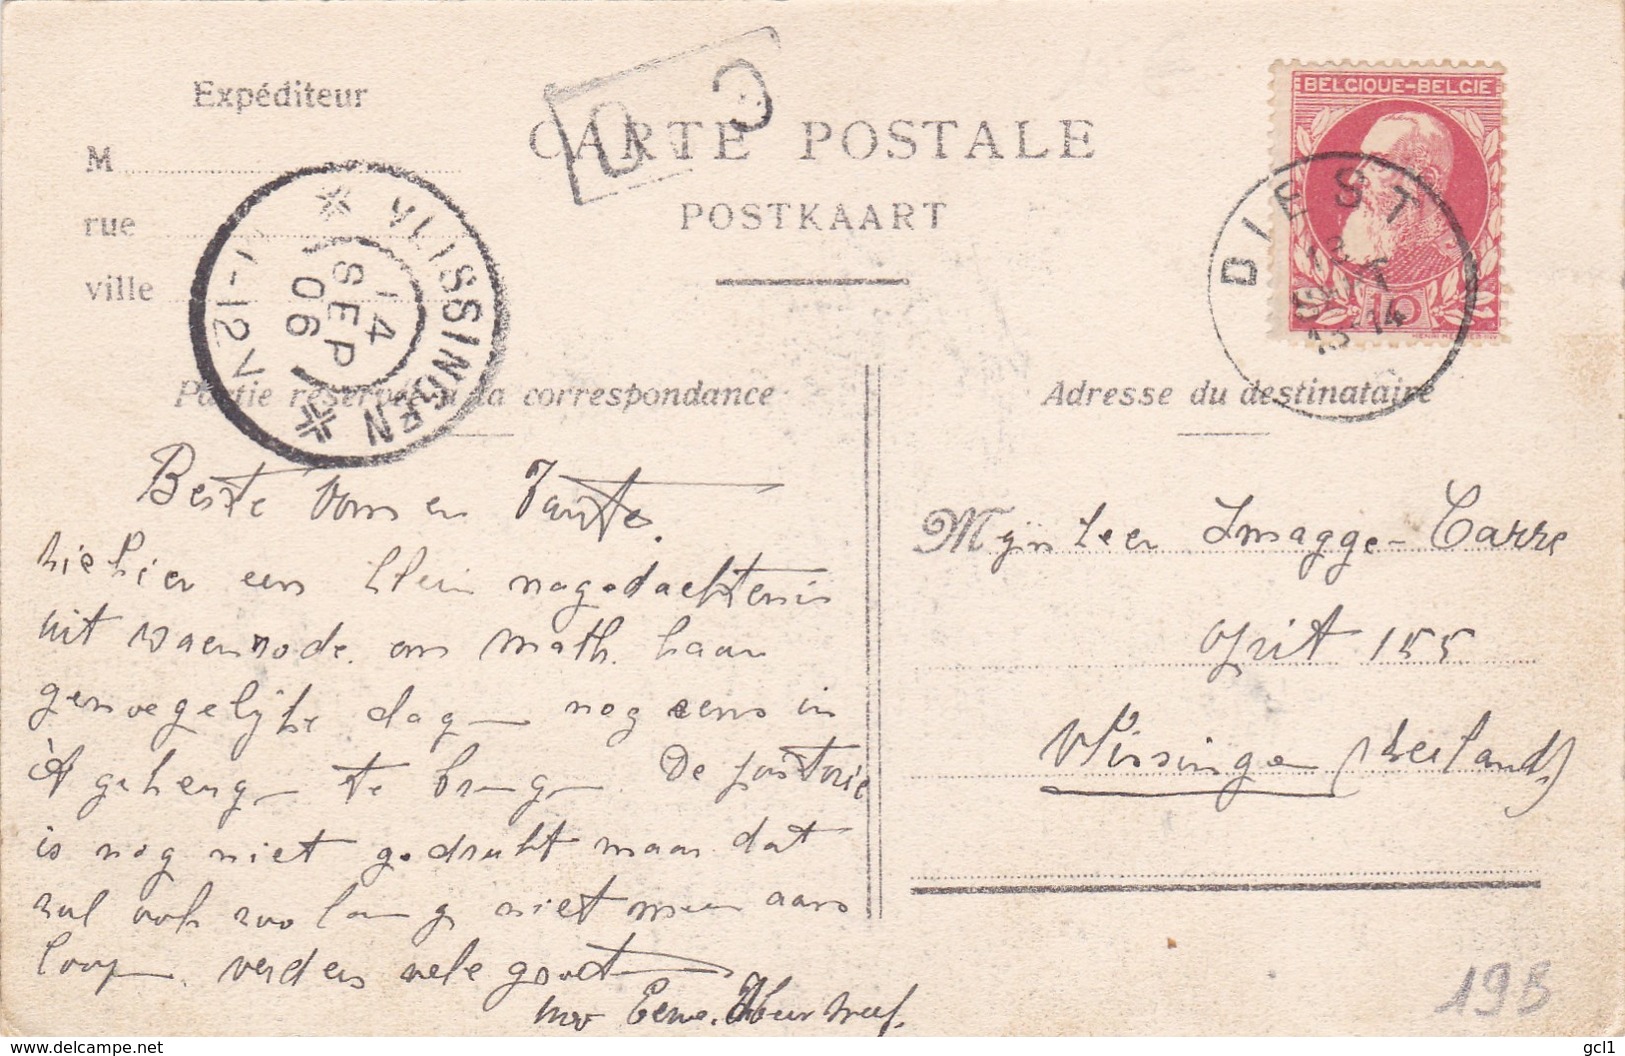 Expéditeur
M
rue
ville
CARTE POSTALE
POSTKAART
BELGIQUE-BELGIE
10
DIEST
13-14
VLISSINGEN
14
SEP
06
11-12V
Partie réservée à la correspondance
Adresse du destinataire
Beste Oom en Tante.
ziehier een klein nagedachtenis
uit Waenrode. om math. haar
genoegelijke dag nog eens in
't geheugen te brengen. De pastorie
is nog niet gedrukt maar dat
zal ook zoo lang niet meer aan
loopen. verders vele groet
Mijnheer Imagge-Carre
opzit 155
Vlissingen (Zeeland)
195
delcampe.net
gcl1